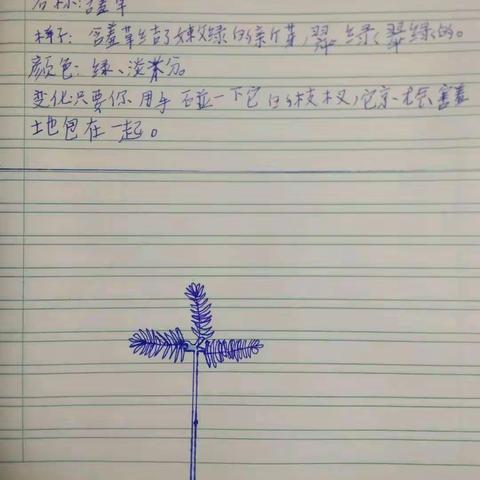 名称:含羞草
样子:含羞草结了嫩绿的新芽,翠绿翠绿的。
颜色:绿、淡茶分。
变化只要你用手碰一下它的枝杈,它就害羞
地包在一起。